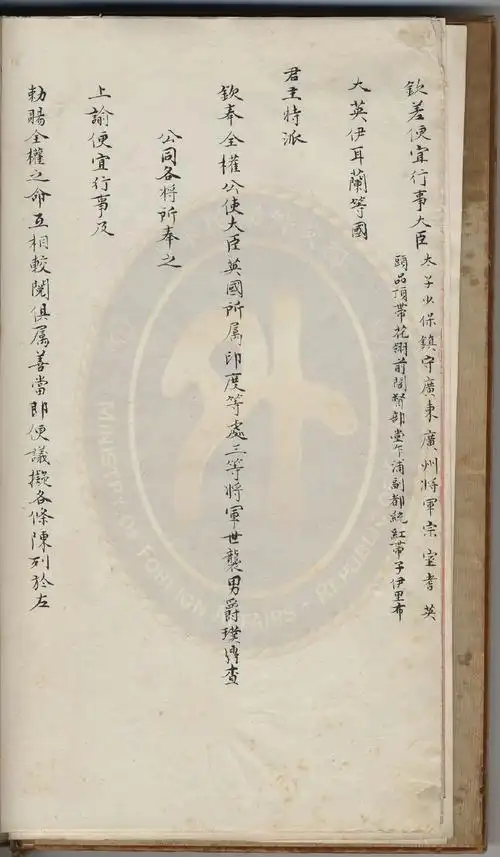 欽差便宜行事大臣
太子少保鎮守廣東廣州將軍宗室耆英
頭品頂帶花翎前閣督部堂乍浦副都統紅帶子伊里布
大英伊耳蘭等國
君主特派
欽奉全權公使大臣英國所屬印度等處三等將軍世襲男爵璞鼎查
公同各將所奉之
上諭便宜行事及
勅賜全權之命互相較閱俱屬善當即便議擬各條陳列於左
MINISTRY OF FOREIGN AFFAIRS - REPUBLIC